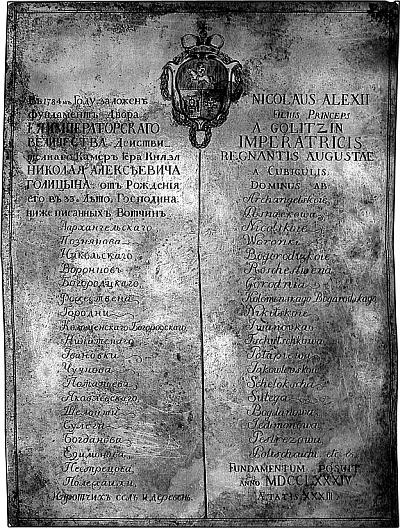 Въ 1784мъ Году заложенъ
фундаментъ Двора
ЕЯ ИМПЕРАТОРСКАГО
ВЕЛИЧЕСТВА Дѣйстви
телнаго Камеръ Гера Князя
НИКОЛАЯ АЛЕКСѢЕВИЧА
ГОЛИЦЫНА: отъ Рожденія
его въ 33. Лѣто, Господина
ниже писанныхъ Вотчинъ
Архангельскаго
Познякова
Никольскаго
Вороновъ
Богородцкаго
Рожествена
Городни
Коломенскаго Богородскаго
Никитскаго
Ивановки
Чучкова
Потапцева
Яковлевскаго
Шелохти
Сулега
Богданова
Едимонова
Пестрецова
Полерхишки
И протчихъ селъ и деревень
NICOLAUS ALEXII
Filius Princeps
A GOLITZIN
IMPERATRICIS
REGNANTIS AUGUSTAE
A Cubiculis
Dominus ab
Archangelskoie
Posniackowa
Nicolskoie
Woronki
Bogorodizkoie
Roschestwena
Gorodnia
Kolomenskago Bogorodskago
Nikitskoie
Iwanowka
Potapiewa
Jakowlewskoie
Schelokscha
Sulega
Bogdanowa
Jedimonowa
Pestrezowi
etc etc
Fundamentum posuit
Anno MDCCLXXXIV
Ætatis XXXIII